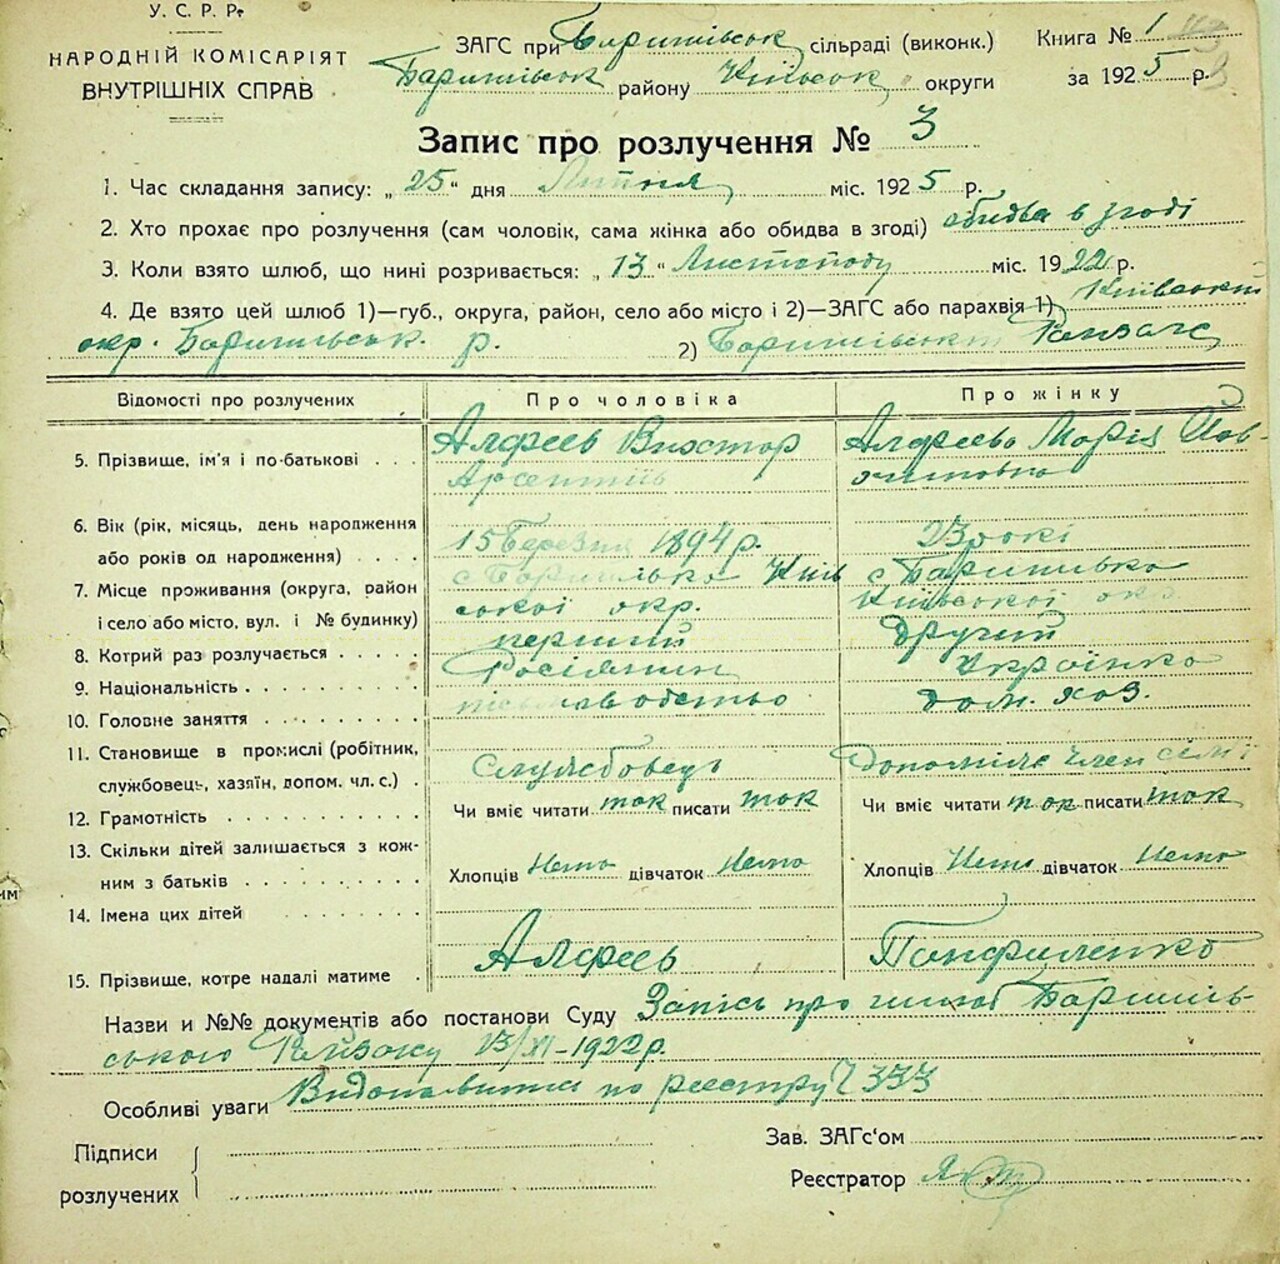 У. С. Р. Р.
НАРОДНІЙ КОМІСАРІЯТ
ВНУТРІШНІХ СПРАВ
ЗАГС при Баришівськ сільраді (виконк.) Книга № 1
Баришівськ району Київськ округи за 1925 р.
Запис про розлучення № 3
1. Час складання запису: „25“ дня Липня міс. 1925 р.
2. Хто прохає про розлучення (сам чоловік, сама жінка або обидва в згоді) обидва в згоді
3. Коли взято шлюб, що нині розривається: „13“ Листопаду міс. 1922 р.
4. Де взято цей шлюб 1)—губ., округа, район, село або місто і 2)—ЗАГС або парахвія 1) Київський
окр. Баришівськ. р. 2) Баришівськ
Відомості про розлучених Про чоловіка Про жінку
5. Прізвище, ім'я і по-батькові . . . Алфеев Виктор Алфеева Марія Йов-
Арсентіїв химовна
6. Вік (рік, місяць, день народження
або років од народження) . . . . 15 Березня 1894 р. 23 рокі
7. Місце проживання (округа, район с Баришівка Київ с Баришівка
і село або місто, вул. і № будинку) ської окр. Київської окр.
8. Котрий раз розлучається . . . . . перший другий
9. Національність . . . . . . . . . . Росіянин Українка
10. Головне заняття . . . . . . . . . дом. хоз.
11. Становище в промислі (робітник,
службовець, хазяїн, допом. чл. с.) . Службовець член сімї
12. Грамотність . . . . . . . . . . . Чи вміє читати так писати так Чи вміє читати так писати так
13. Скільки дітей залишається з кож-
ним з батьків . . . . . . . . . . Хлопців Нема дівчаток Нема Хлопців Нема дівчаток Нема
14. Імена цих дітей . . . . . . . .
15. Прізвище, котре надалі матиме . Алфеев Панфиленко
Назви и №№ документів або постанови Суду Запись про шлюб Баришів-
ського 13/XI-1922 р.
Особливі уваги по реестру Ч 333
Підписи
розлучених
Зав. ЗАГс'ом
Реєстратор